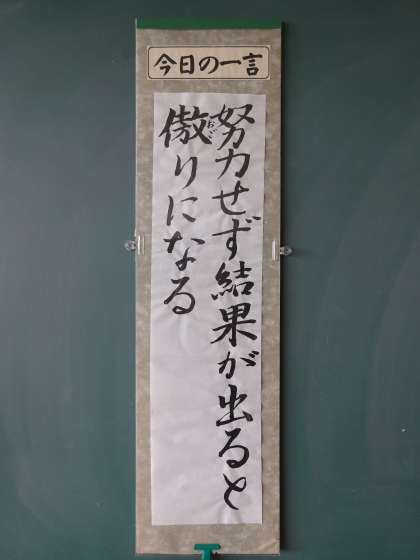 今日の一言
努力せず結果が出ると
傲りになる
おご